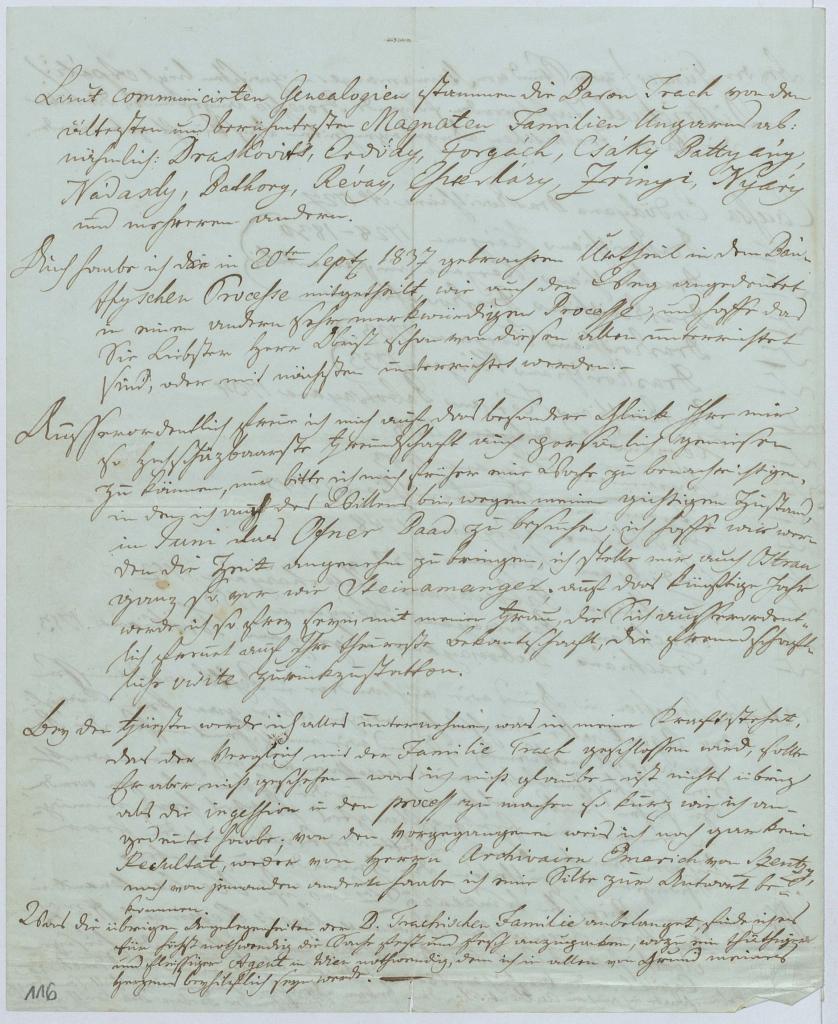 Laut communicirten Genealogien stammen die Baron Trach von den
ältesten und berühmtesten Magnaten Familien Ungarns ab:
nähmlich: Draskovits, Erdődy, Forgách, Csáky Battyány,
Nádasdy, Bathory, Révay, Eszterházy, Zrinyi, Nyáry
und mehreren andern.
Auch habe ich in 20ten Sept 1837 gebrachten Urtheil in dem
Processe mitgetheilt wie auch den Weeg angedeutet
in einen andern sehr merkwürdigen Processe, und hoffe das
Sie Liebster Herr schon von diesen allen unterrichtet
sind, oder mit nächsten unterrichtet werden.—
Ausserordentlich freue ich mich auf das besondere Glück Ihre mir
so hochschäzbaarste Freundschaft auch persönlich geniesen
zu können, nur bitte ich mich früher eine Woche zu benachrichtigen,
in dem ich auch des Willens bin, wegen meinen gichtigen Zustand,
im Juni das Ofner Baad zu besuchen. ich hoffe wir wer-
den die Zeit angenehm zu bringen, ich stelle mir auch Ostrau
ganz so vor wie Steinamanger. auf das künftige Jahr
werde ich so frey seyn mit meiner Frau, die sich ausserordent-
lich freuet auf Ihre theureste Bekantschaft, die freundschaft-
liche visite zurückzustatten.
Bey den Fürsten werde ich alles unternehmen, was in meiner Kraft stehet,
das der Vergleich mit der Familie Trach geschlossen wird, sollte
Er aber nicht geschehen – was ich nicht glaube – ist nichts übrig
als die ingession in den process zu machen so kurz wie ich an-
gedeutet habe; von den vorgegangenen weis ich noch gar kein
Resultat, weder von Herrn Archivairn Emerich von
noch von jemanden andern habe ich eine Silbe zur Antwort be-
kommen.
Was die übrigen Angelegenheiten der B. Trachischen Familie anbelanget, finde ich es
für höchst nothwendig die Sache fest und anzugreifen, wozu ein thätiger
und fleissiger Agent in Wien nothwendig, dem ich in allen von Grund meines
Herzens beyhilflich seyn werde.
116